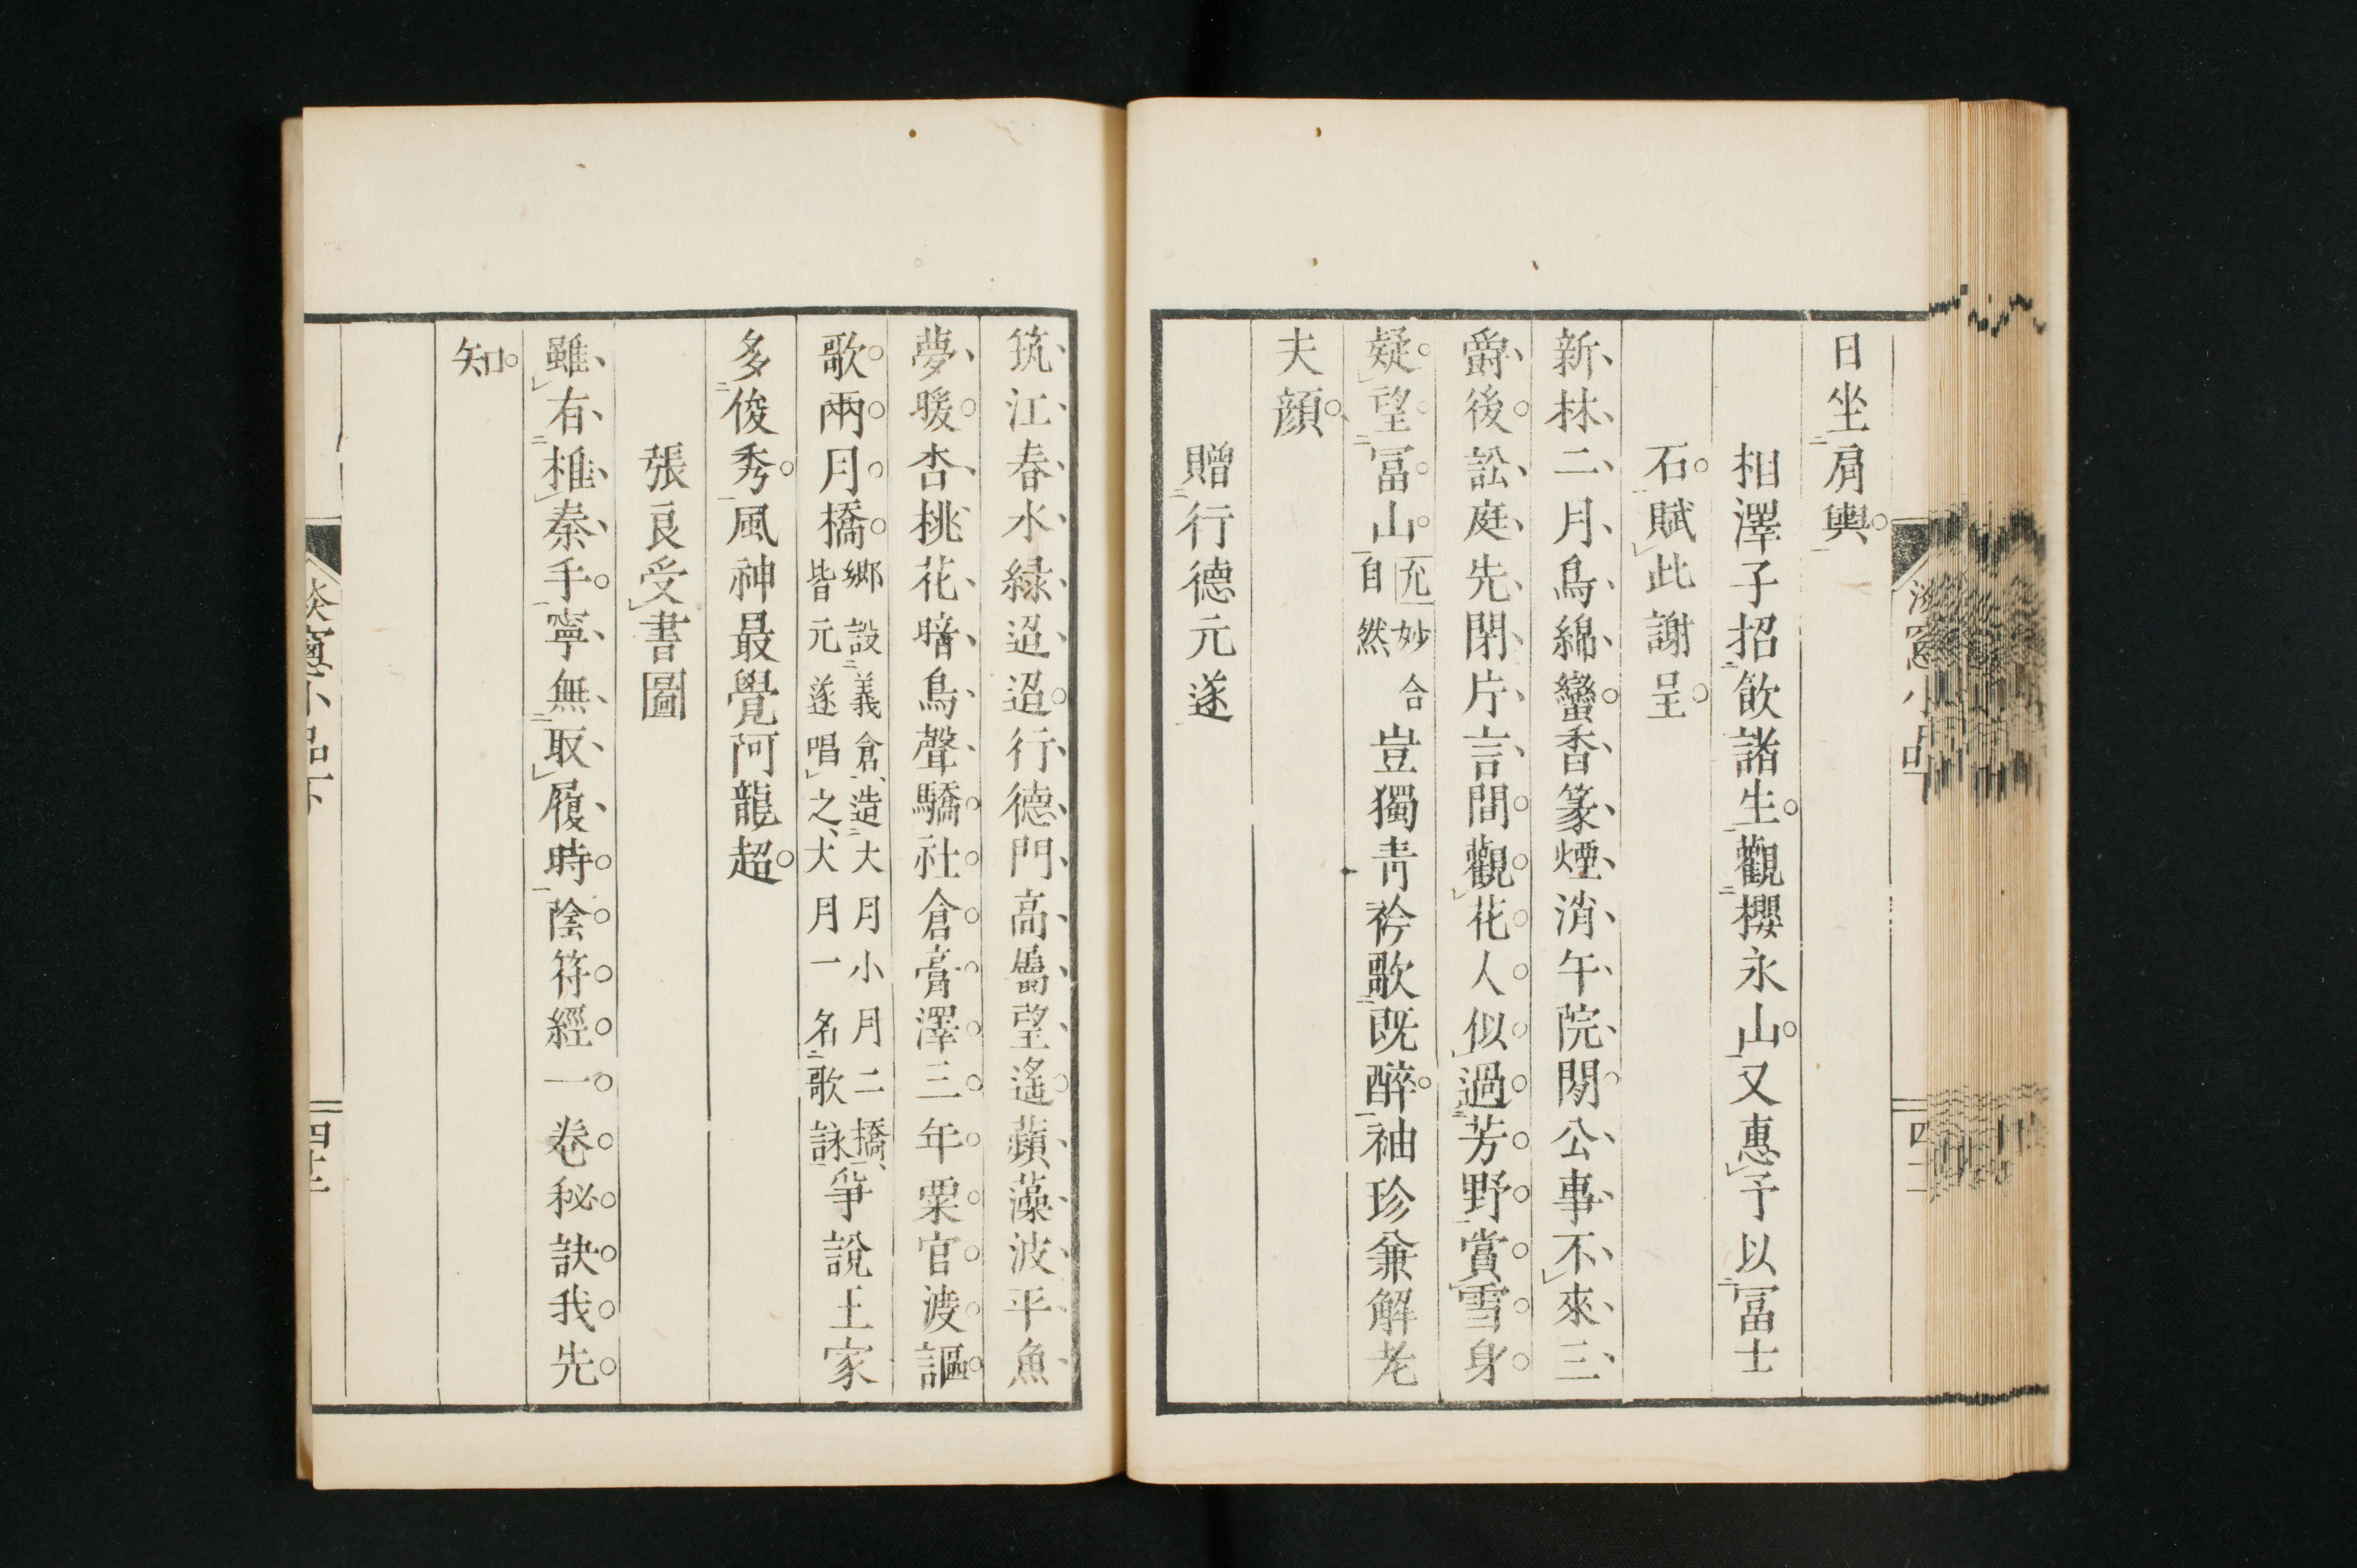 日坐肩輿
相澤子招飲諸生觀櫻永山又惠予以冨士
石賦此謝呈
新林二月鳥綿蠻香篆煙消午院閑公事不來三
爵後訟庭先閉片言間觀花人似過芳野賞雪身
疑望冨山
妙合
自然
豈獨靑衿歌既醉袖珍兼解老
夫顔
贈行德元遂
筑江春水緑迢迢行德門高屬望遙蘋藻波平魚
夢暖杏桃花暗鳥聲驕社倉膏澤三年粟官渡謳
歌兩月橋
鄕設義倉造大月小月二橋
皆元遂唱之大月一名歌詠
爭說王家
多俊秀風神最覺阿龍超
張良受書圖
雖有椎秦手寧無取履時陰符經一卷秘訣我先
知